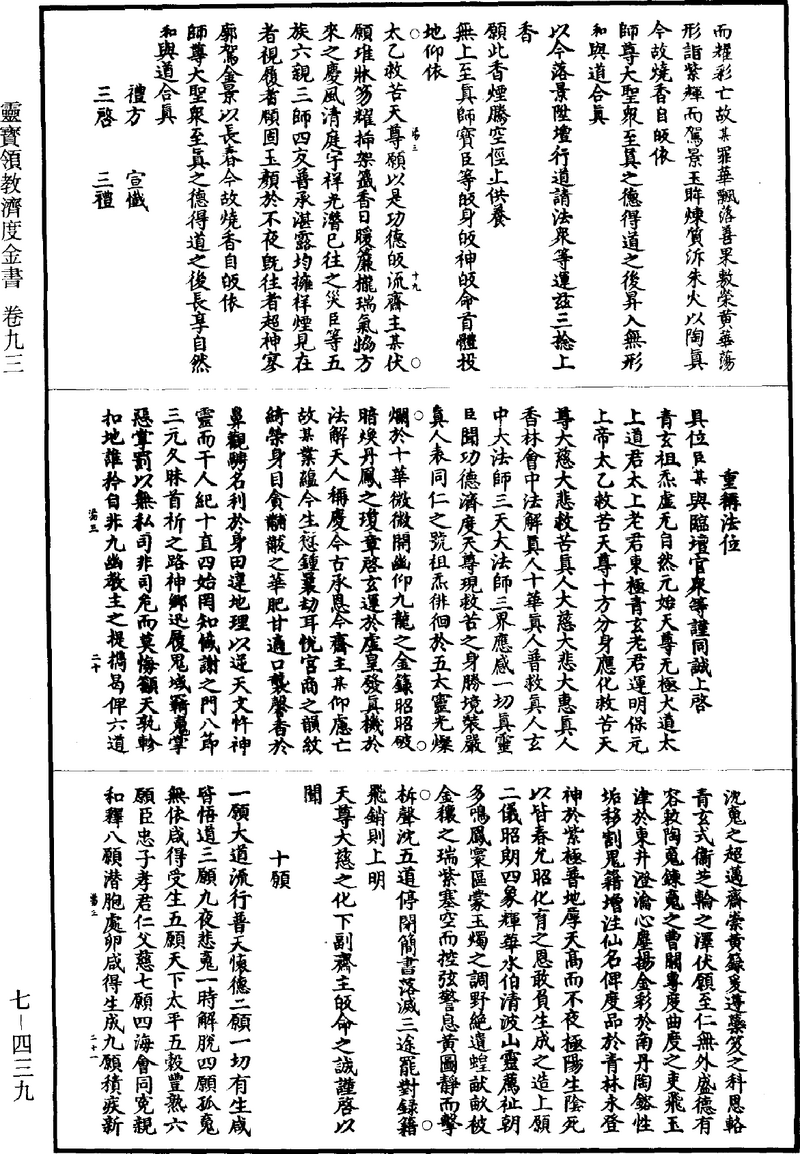 靈寶領教濟度金書　卷九三
七－四三九
而耀彩亡故某罪華飄落善果敷榮黃華蕩
形詣紫輝而駕景玉眸煉質泝朱火以陶真
今故燒香自皈依
師尊大聖衆至真之德得道之後昇入無形
和與道合真
以今落景陞壇行道請法衆等運茲三捻上
香
願此香煙騰空徑上供養
無上至真師寶臣等皈身皈神皈命首體投
地仰依
太乙救苦天尊願以是功德皈流齋主某伏
願堆牀笏耀插架籤香日暖簾櫳瑞氣協方
來之慶風清庭宇祥光潛已往之災臣等五
族六親三師四友普承湛露均擁祥煙見在
者視履者願固玉顏於不夜旣往者超神寥
廓駕金景以長春今故燒香自皈依
師尊大聖衆至真之德得道之後長享自然
和與道合真
禮方　宣懺
三啓　三禮
重稱法位
具位臣某與臨壇官衆等謹同誠上啓
青玄祖炁虛无自然元始天尊无極大道太
上道君太上老君東極青玄老君運明保元
上帝太乙救苦天尊十方分身應化救苦天
尊大慈大悲救苦真人大慈大悲大惠真人
香林會中法解真人十華真人普救真人玄
中大法師三天大法師三界應感一切真靈
臣聞功德濟度天尊現救苦之身勝境裝嚴
真人表同仁之號祖炁徘徊於五大靈光燦
爛於十華微微開幽仰九龍之金籙昭昭破
暗煥丹鳳之瓊章啓玄運於虛皇發真機於
法解天人稱慶今古承恩今齋主某仰慮亡
故某業蘊今生愆鍾曩劫耳悅宮商之韻紋
綺榮身目貪黼黻之華肥甘適口襲馨香於
鼻觀騁名利於身田違地理以逆天文忤神
靈而干人紀十直四始罔知懺謝之門八節
三元久昧首祈之路神鄉迅履鬼域羇魂掌
惡掌罰以無私司非司危而莫悔籲天執軫
扣地誰矜自非九幽教主之提攜曷俾六道
沈魂之超邁齋崇黃籙爰遵蘂笈之科恩輅
青玄式衞芝輪之澤伏願至仁無外盛德有
容敕陶魂錬鬼之曹關專度曲度之吏飛玉
津於東井澄瀹心塵揚金彩於南丹陶鎔性
垢移割鬼籍增注仙名俾度品於青林永登
神於紫極普地厚天高而不夜極陽生陰死
以皆春允昭化育之恩敢負生成之造上願
二儀昭朗四象輝華水伯清波山靈薦祉朝
多鳴鳳寰區蒙玉燭之調野絶遺蝗畎畝被
金穰之瑞紫塞空而控弦警息黃圖靜而擊
柝聲沈五道停閉簡書落滅三途罷對錄籍
飛銷則上明
天尊大慈之化下副齋主皈命之誠謹啓以
聞
十願
一願大道流行普天懷德二願一切有生咸
皆悟道三願九夜悲魂一時解脫四願孤魂
無依咸得受生五願天下太平五穀豐熟六
願臣忠子孝君仁父慈七願四海會同冤親
和釋八願潛胞處卵咸得生成九願積疾新